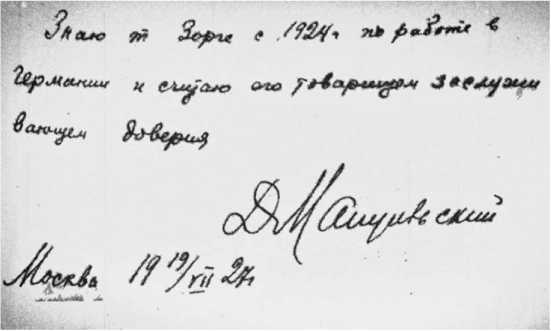 Знаю т Зорге с 1924 г по работе в
Германии и считаю его товарищем заслужи
вающем доверия
ДМануильский
Москва 19 19/VII 27г